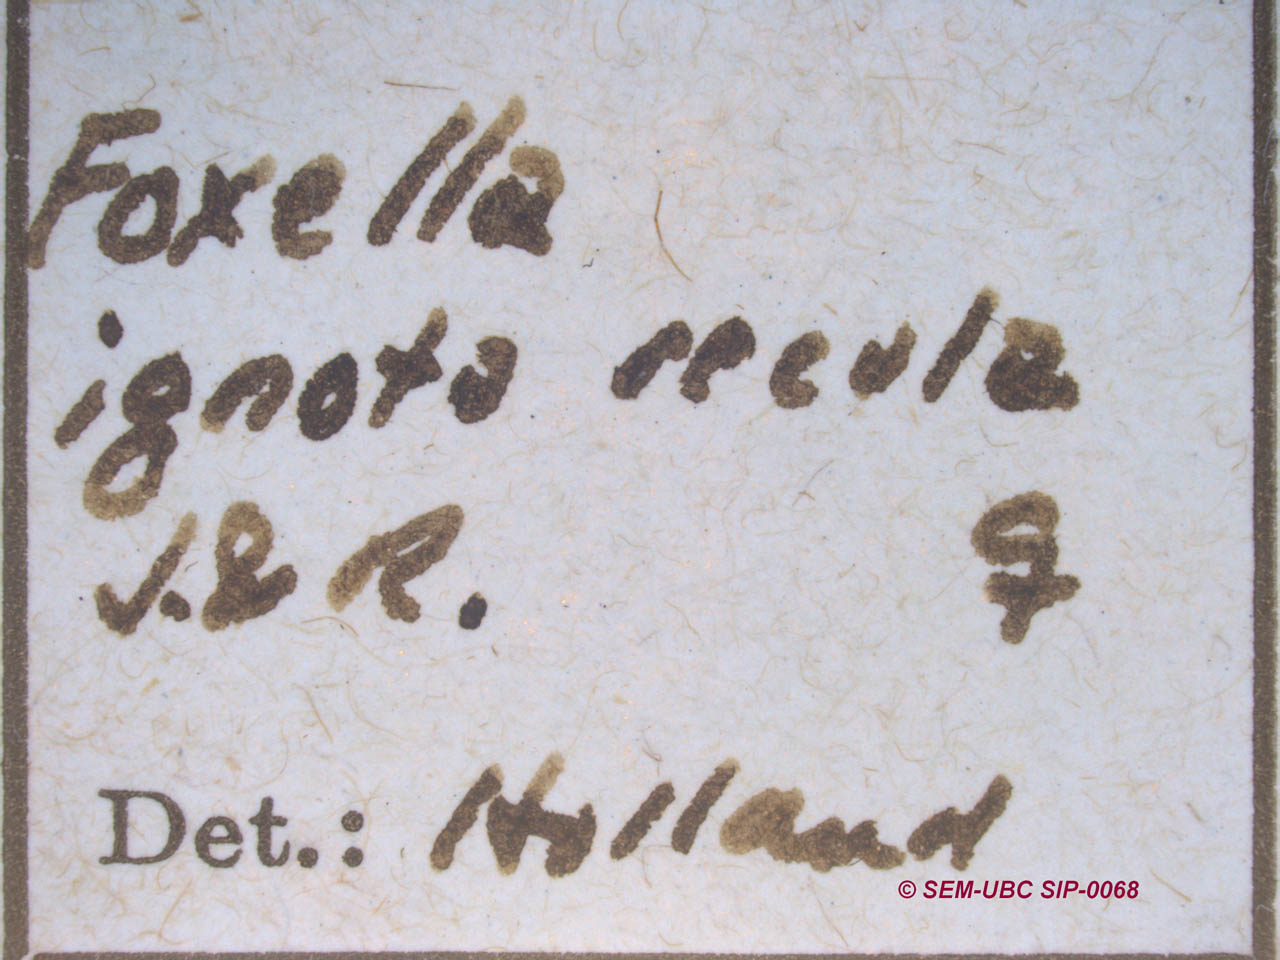 Foxella
ignota recula
J. & R. ♀
Det.: Holland
© SEM-UBC SIP-0068